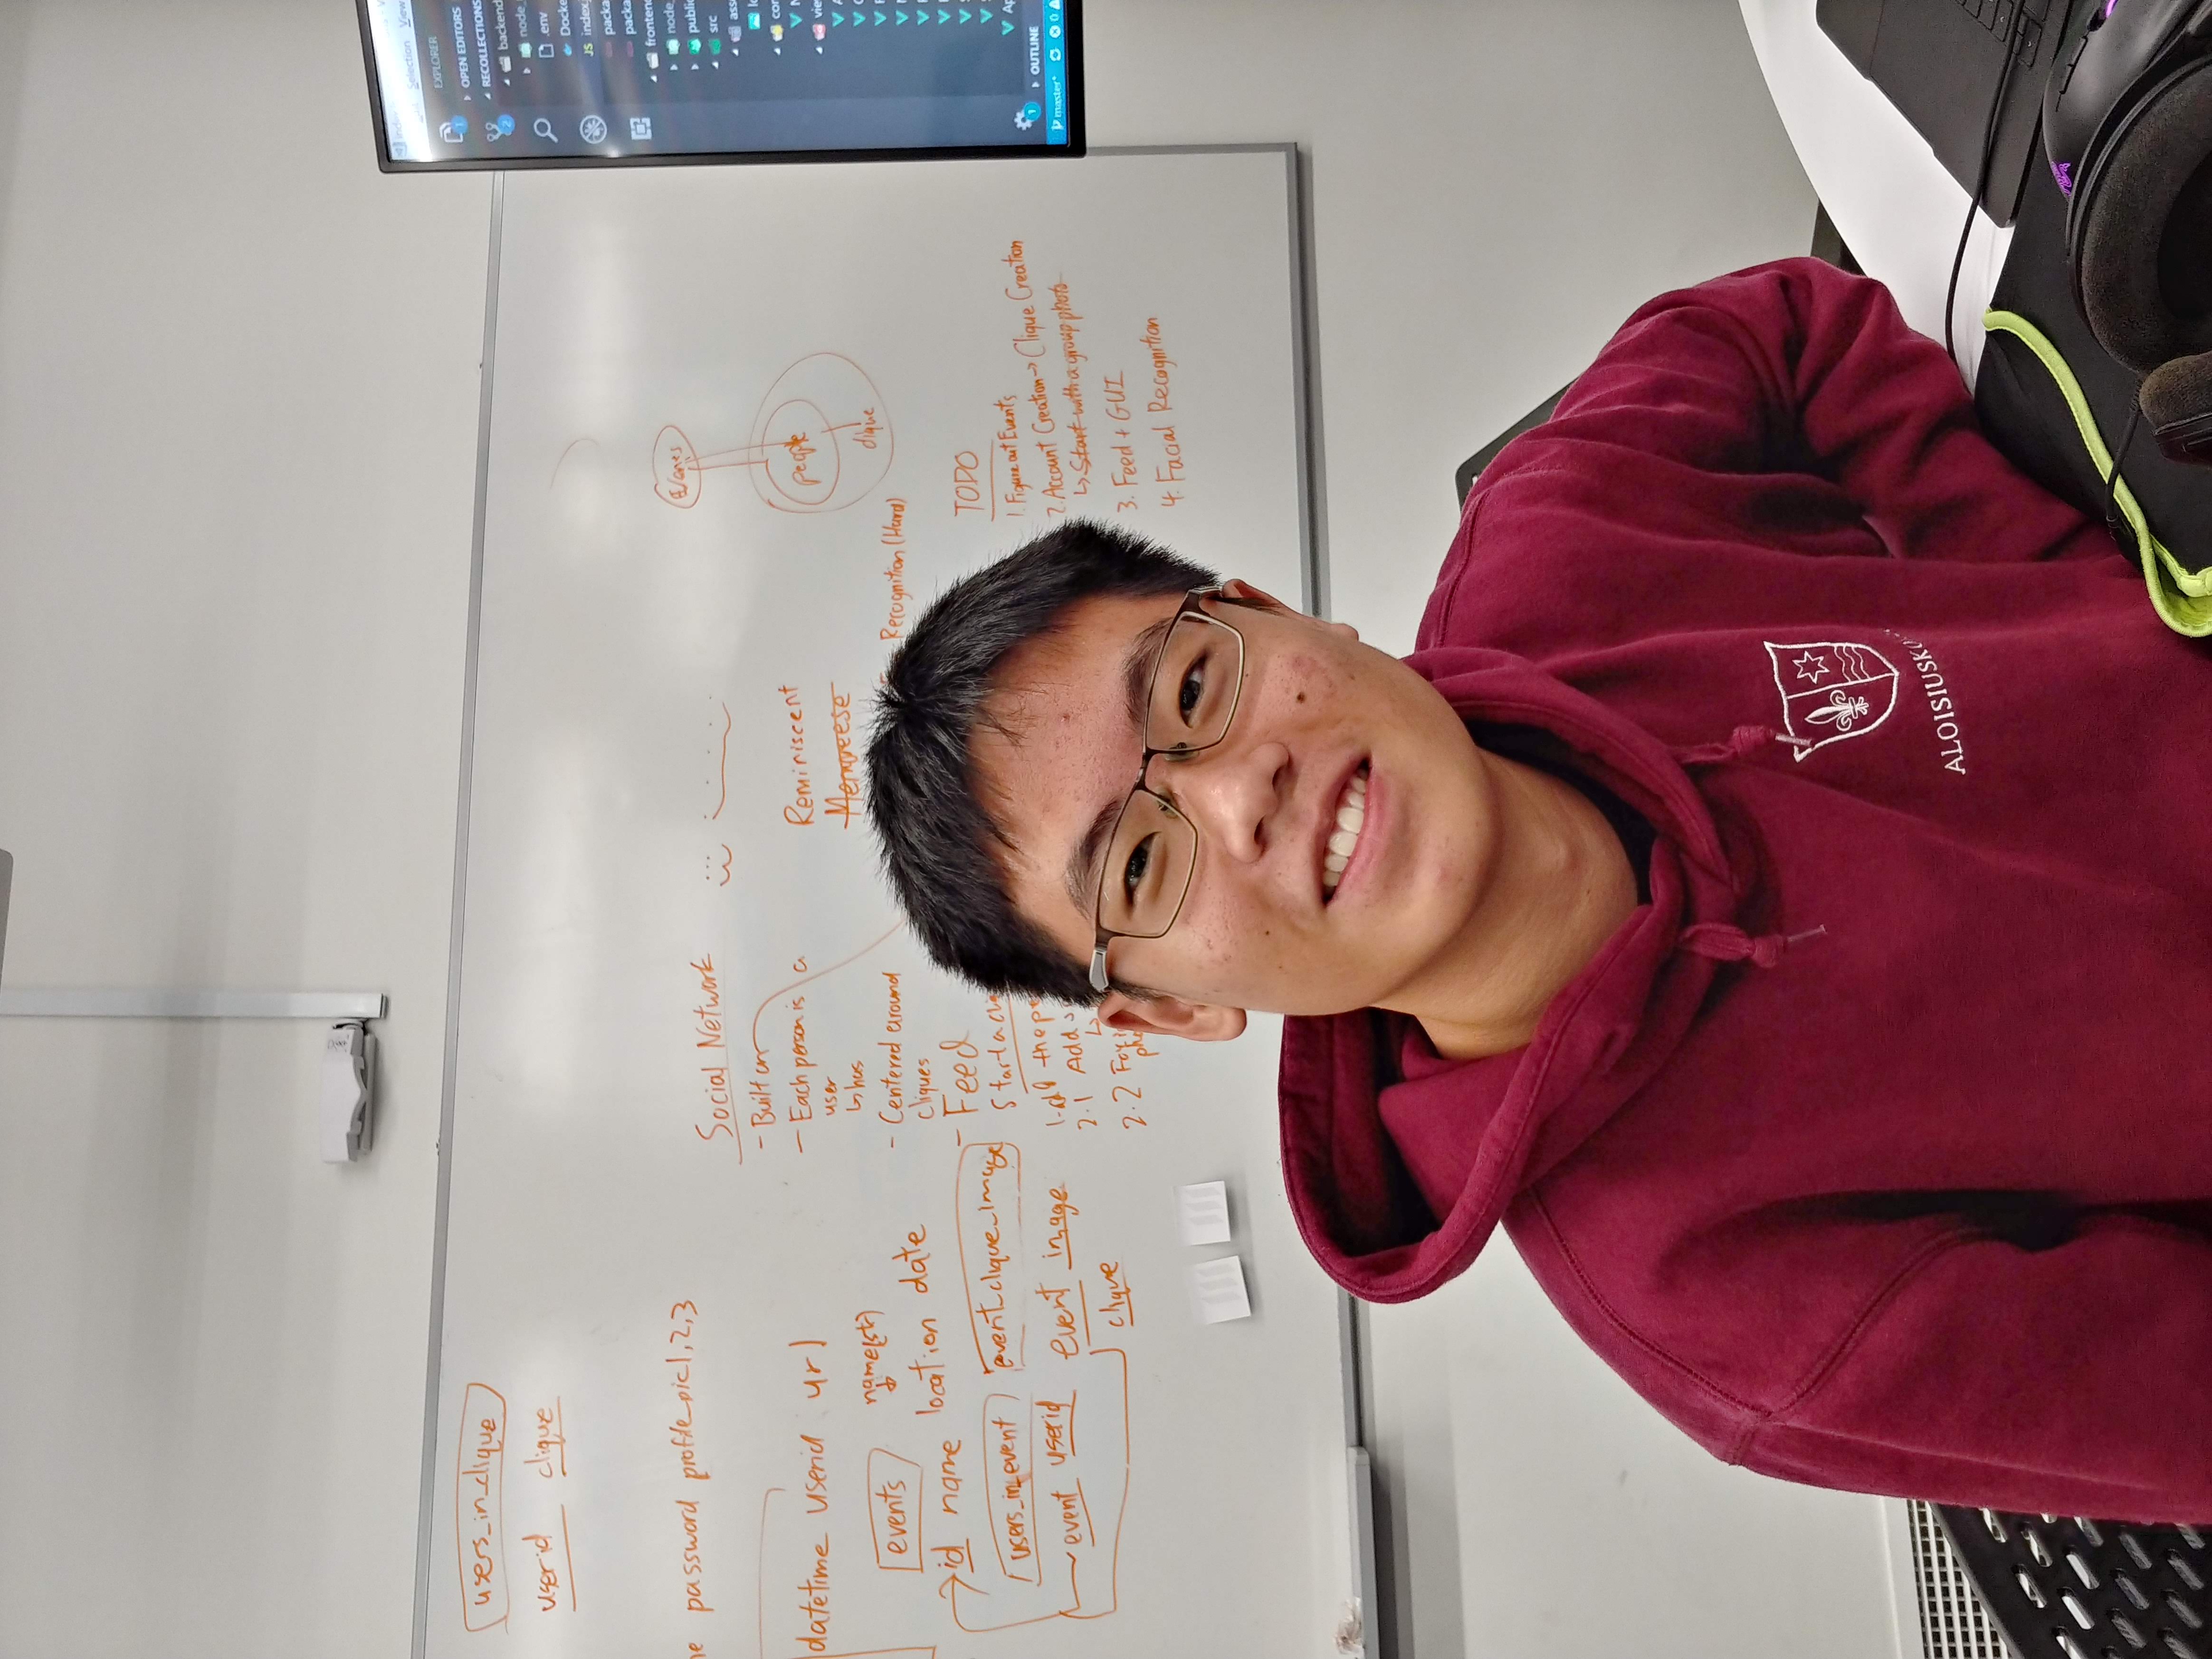 users_in_clique
userid clique
password profile_pic1,2,3
datetime userid url
events
name(str)
id name location date
users_in_event
event_clique_image
event userid
event image
clique
Social Network
- Built on
- Each person is a
user
↳ has
- Centered around
cliques
- Feed
Start a
2.1 Add
2.2
Reminiscent
Recognition (Hard)
people
clique
TODO
1. Figure out Events
2. Account Creation → Clique Creation
↳ Start with a group photo
3. Feed + GUI
4. Facial Recognition
Selection View
EXPLORER
OPEN EDITORS
RECOLLECTIONS
backend
node_
.env
Docke
JS index.
packa
packa
fronten
node_
public
src
ass
OUTLINE
master*
ALOISIUSKO